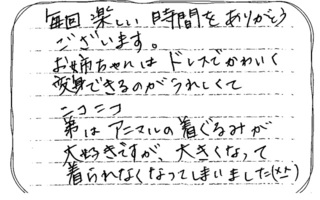 毎回 楽しい 時間を ありがとう
ございます。
お姉ちゃんは ドレスで かわいく
変身できるのが うれしくて
ニコニコ
弟は アニマルの 着ぐるみが
大好きですが、大きくなって
着られなくなってしまいました(××)